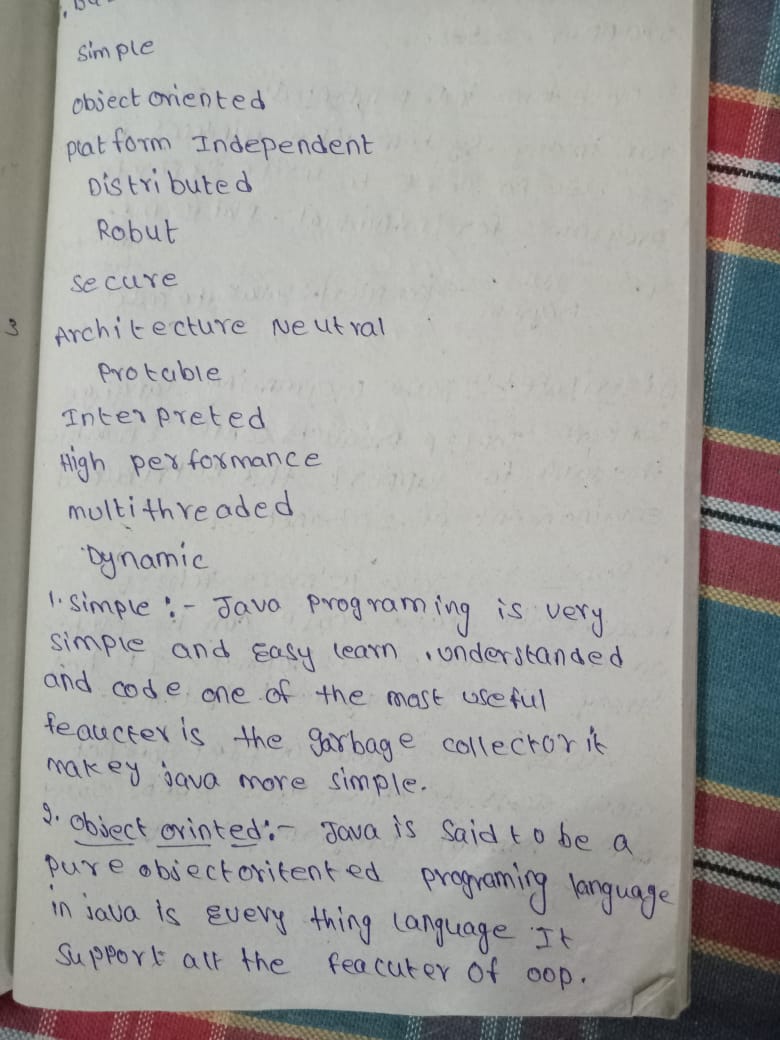 simple
object oriented
platform Independent
Distributed
Robut
secure
3
Architecture Neutral
Protable
Interpreted
High performance
multithreaded
Dynamic
1. Simple :- Java programing is very
simple and easy learn , understanded
and code one of the mast useful
feaucter is the garbage collector it
makey java more simple.
2. Object orinted :- Java is said to be a
pure objectoritented programing language
in java is every thing language It
support all the feacuter of oop.